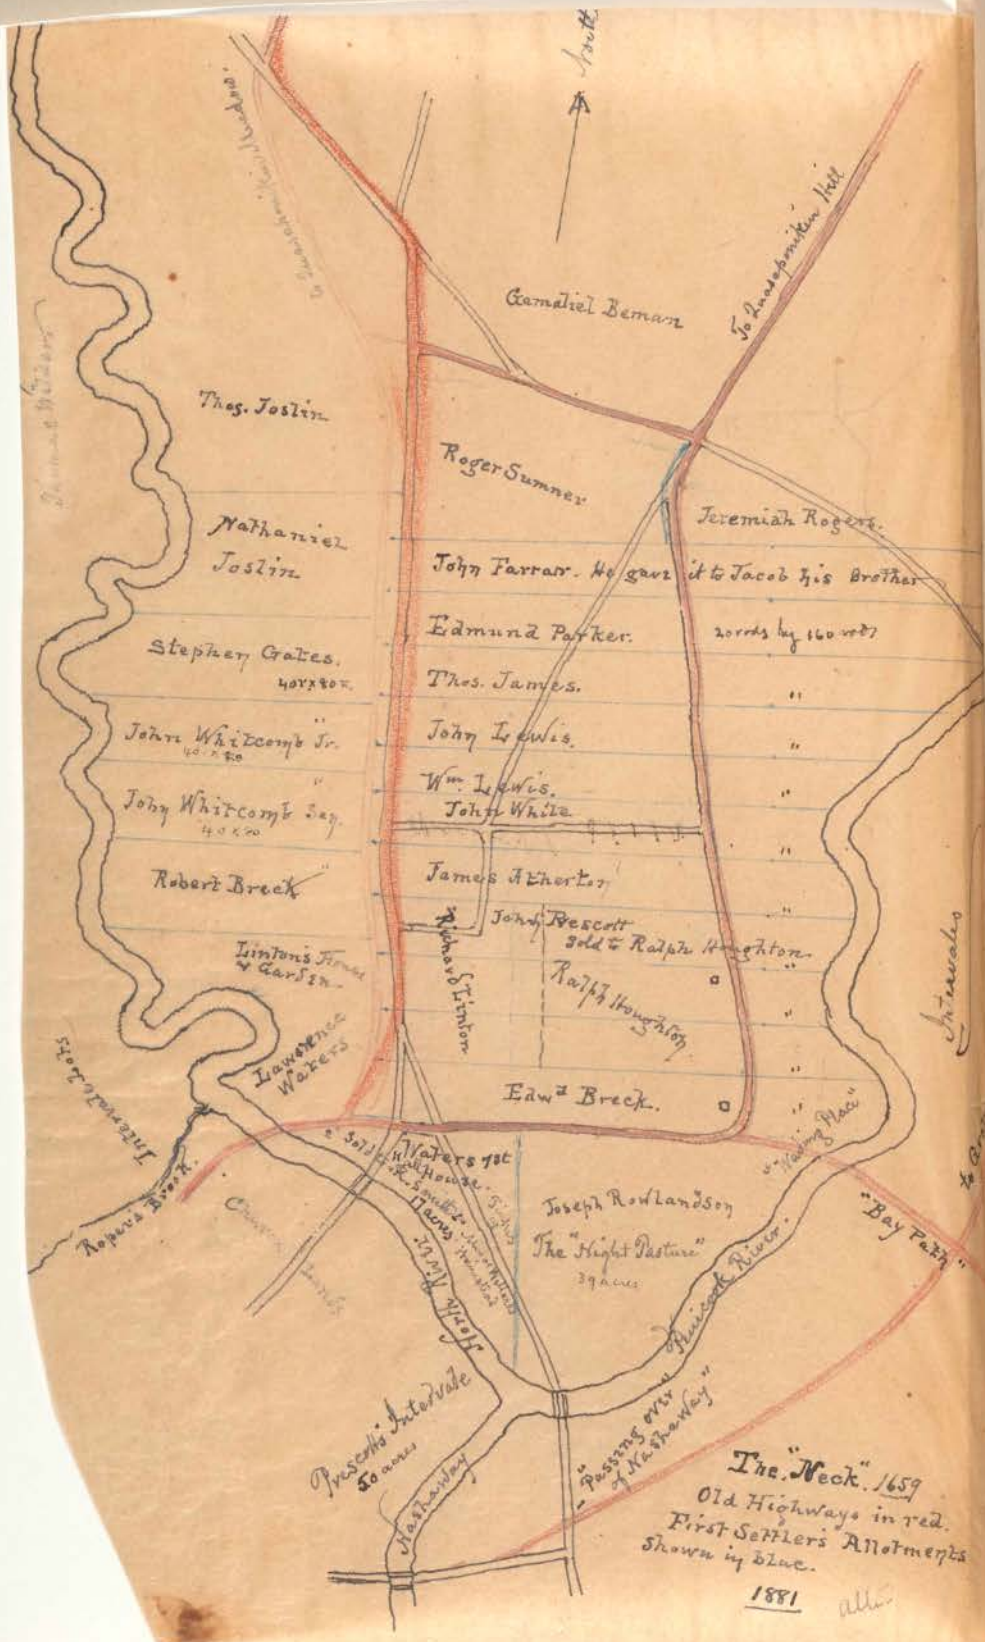 North
To Quasaponikin Hill
to Quasaponikin Meadow.
Gamaliel Beman
Thos. Joslin
Roger Sumner
Nathaniel
Joslin
Jeremiah Rogers.
John Farrar. He gave it to Jacob his Brother
Stephen Gates.
40r x 80r.
Edmund Parker.
20 rods by 160 rods
Thos. James.
"
John Whitcomb Jr.
"
40 x 80
John Lewis.
"
John Whitcomb Sen.
"
40 x 80
Wm. Lewis.
"
John White
"
Robert Breck
"
James Atherton
"
John Prescott
sold to Ralph Houghton.
"
Richard Linton
Linton's House
& Garden.
Ralph Houghton
"
Lawrence
Waters
Edwd Breck.
"
"
Intervales
Intervale Lots
Roper's Brook.
Church
Lands
Sold to
Waters 1st
House.
17 acres
North River
Joseph Rowlandson
The "Night Pasture"
39 acres
"Wading Place"
"Bay Path"
Penicook River.
Prescott's Intervale
50 acres
Nashaway
"Passing over
of Nashaway"
The "Neck". 1659
Old Highways in red.
First Settlers Allotments
shown in blue.
1881